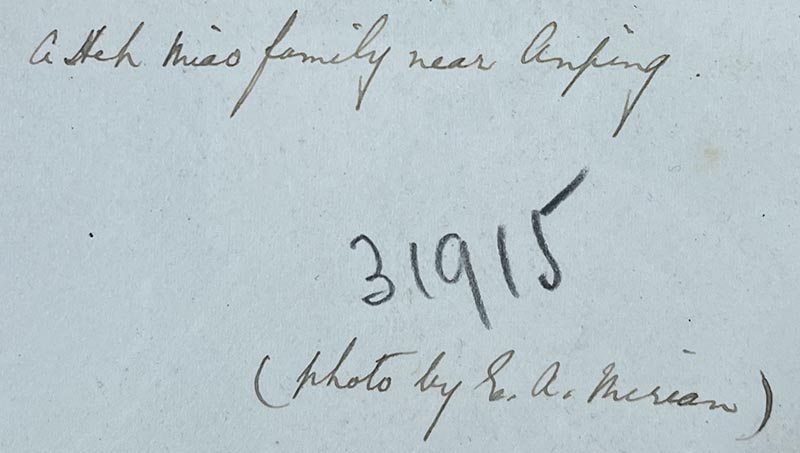 A Heh Miao family near Anping.
31915
(photo by E. A. Merian)